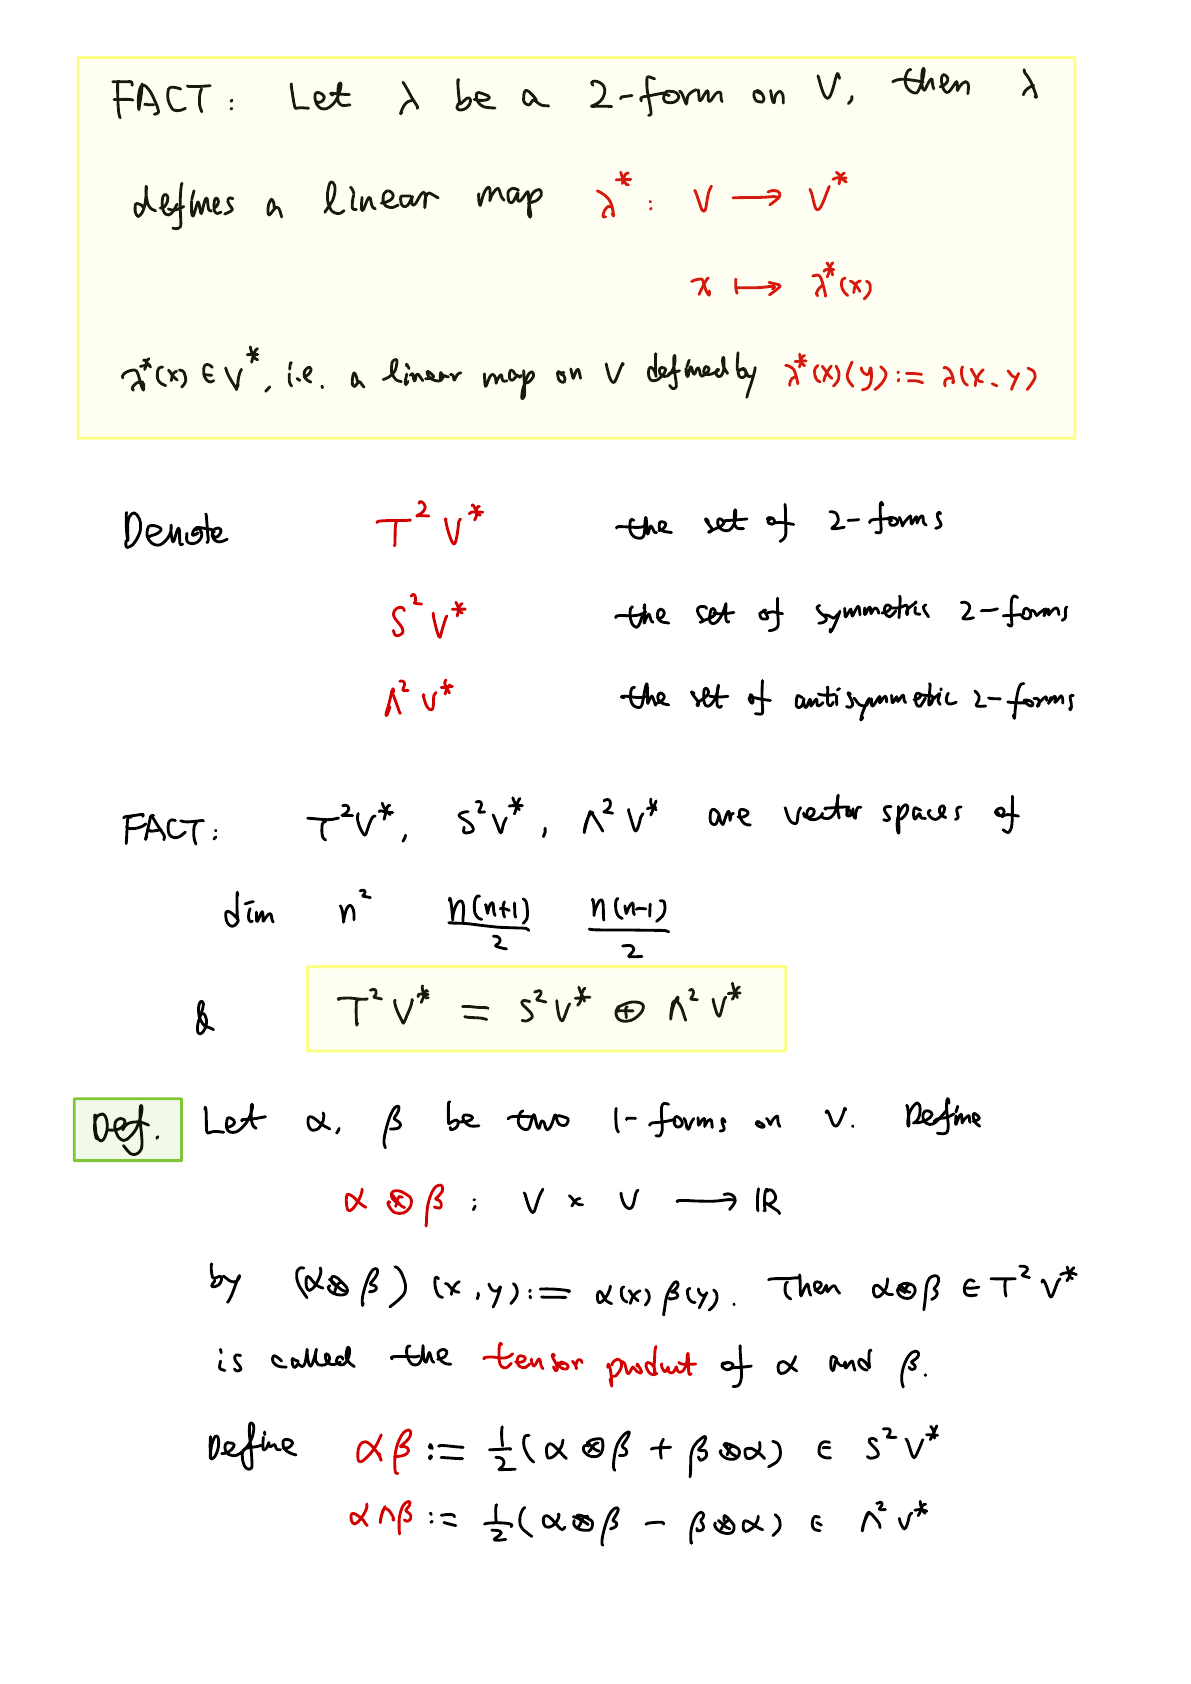 FACT: Let λ be a 2-form on V, then λ
defines a linear map λ*: V ⟶ V*
x ⟼ λ*(x)
λ*(x) ∈ V*, i.e. a linear map on V defined by λ*(x)(y) := λ(x, y)
Denote T²V* the set of 2-forms
S²V* the set of symmetric 2-forms
Λ²V* the set of antisymmetic 2-forms
FACT: T²V*, S²V*, Λ²V* are vector spaces of
dim n² n(n+1)/2 n(n-1)/2
& T²V* = S²V* ⊕ Λ²V*
Def. Let α, β be two 1-forms on V. Define
α ⊗ β : V × V ⟶ ℝ
by (α⊗β)(x,y) := α(x)β(y). Then α⊗β ∈ T²V*
is called the tensor product of α and β.
Define αβ := ½(α⊗β + β⊗α) ∈ S²V*
α∧β := ½(α⊗β − β⊗α) ∈ Λ²V*